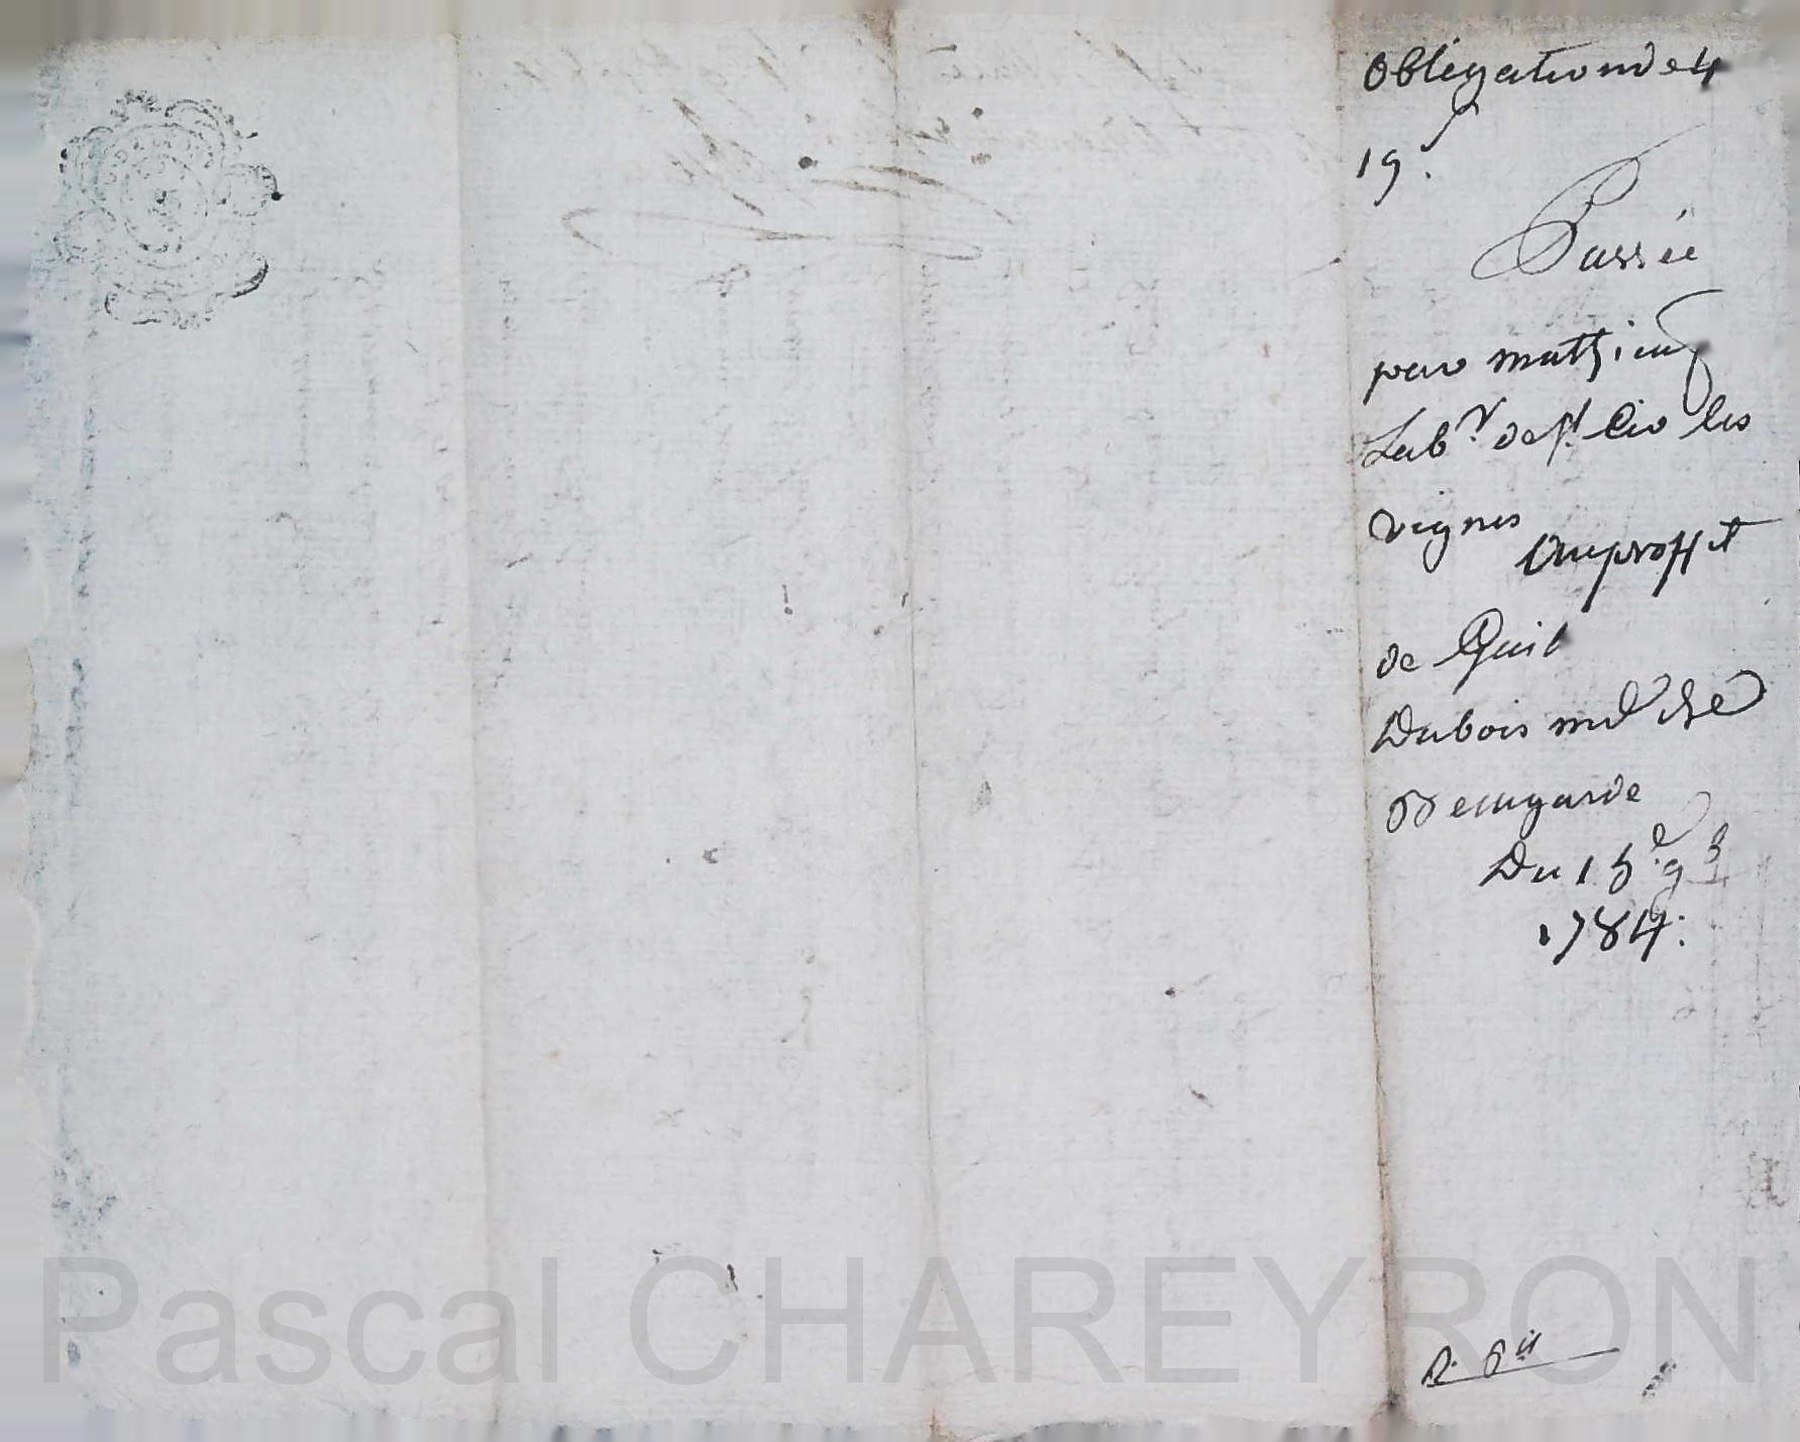 Obligation de 4
19.ˢ
Passée
par mathieu
Lab.ʳ de sᵗ Cir les
vignes
Au proffit
de Guil
Dubois mᵈ de
Beaugarde
Du 15.ᵉ 9.ᵇʳᵉ
1784.
Pascal CHAREYRON